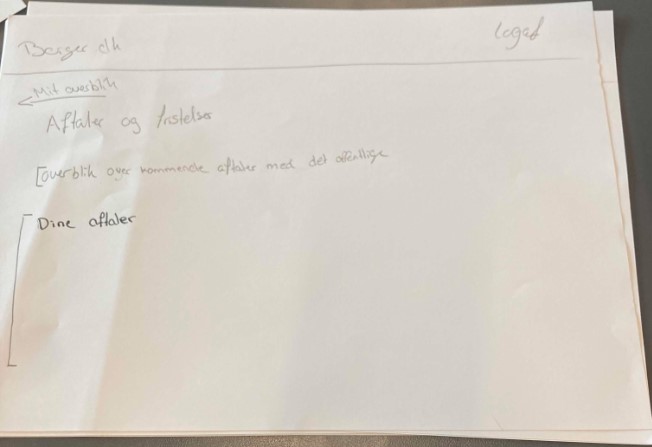 Borger dk
Logaf
Mit overblik
Aftaler og fristelser
[overblik over kommende aftaler med det offentlige
Dine aftaler